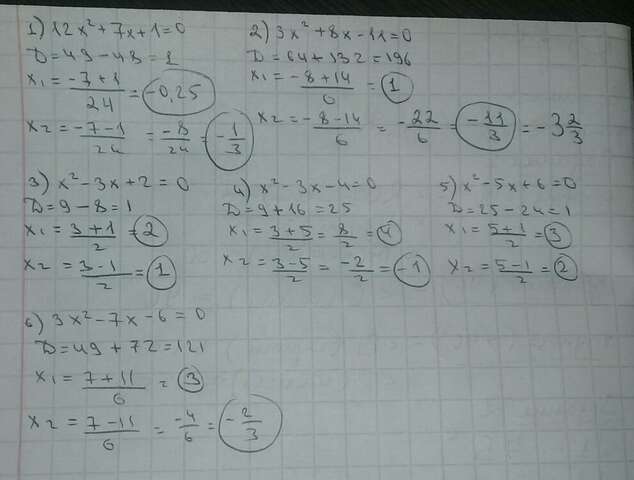 1) 12x² + 7x + 1 = 0
D = 49 - 48 = 1
x₁ = (-7+1)/24 = -0,25
x₂ = (-7-1)/24 = -8/24 = -1/3
2) 3x² + 8x - 11 = 0
D = 64 + 132 = 196
x₁ = (-8+14)/6 = 1
x₂ = (-8-14)/6 = -22/6 = -11/3 = -3 2/3
3) x² - 3x + 2 = 0
D = 9 - 8 = 1
x₁ = (3+1)/2 = 2
x₂ = (3-1)/2 = 1
4) x² - 3x - 4 = 0
D = 9 + 16 = 25
x₁ = (3+5)/2 = 8/2 = 4
x₂ = (3-5)/2 = -2/2 = -1
5) x² - 5x + 6 = 0
D = 25 - 24 = 1
x₁ = (5+1)/2 = 3
x₂ = (5-1)/2 = 2
6) 3x² - 7x - 6 = 0
D = 49 + 72 = 121
x₁ = (7+11)/6 = 3
x₂ = (7-11)/6 = -4/6 = -2/3